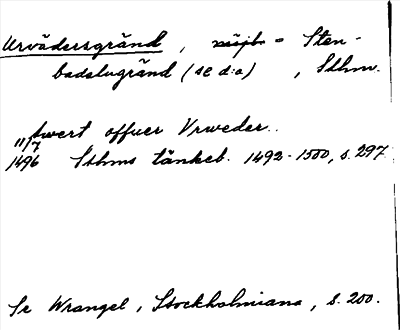 Urvädersgränd, = Sten-
badstugränd (se d:o), Sthm.
twert offuer Vrweder.
11/7
1496 Sthms tänkeb. 1492-1500, s. 297
Se Wrangel, Stockholmiana, s. 200.